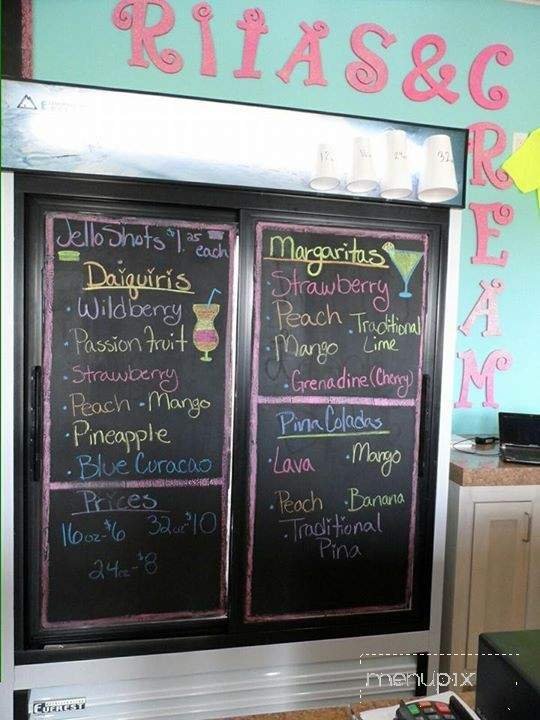 RITAS & CREAM
12
16
24
32
Jello Shots $1.25 each
Daiquiris
· Wildberry
· Passion Fruit
· Strawberry
· Peach · Mango
· Pineapple
· Blue Curacao
Prices
16oz-$6 32oz $10
24oz-$8
Margaritas
· Strawberry
· Peach
· Traditional Lime
· Mango
· Grenadine (Cherry)
Pina Coladas
· Lava · Mango
· Peach · Banana
· Traditional Pina
EVEREST
menupix